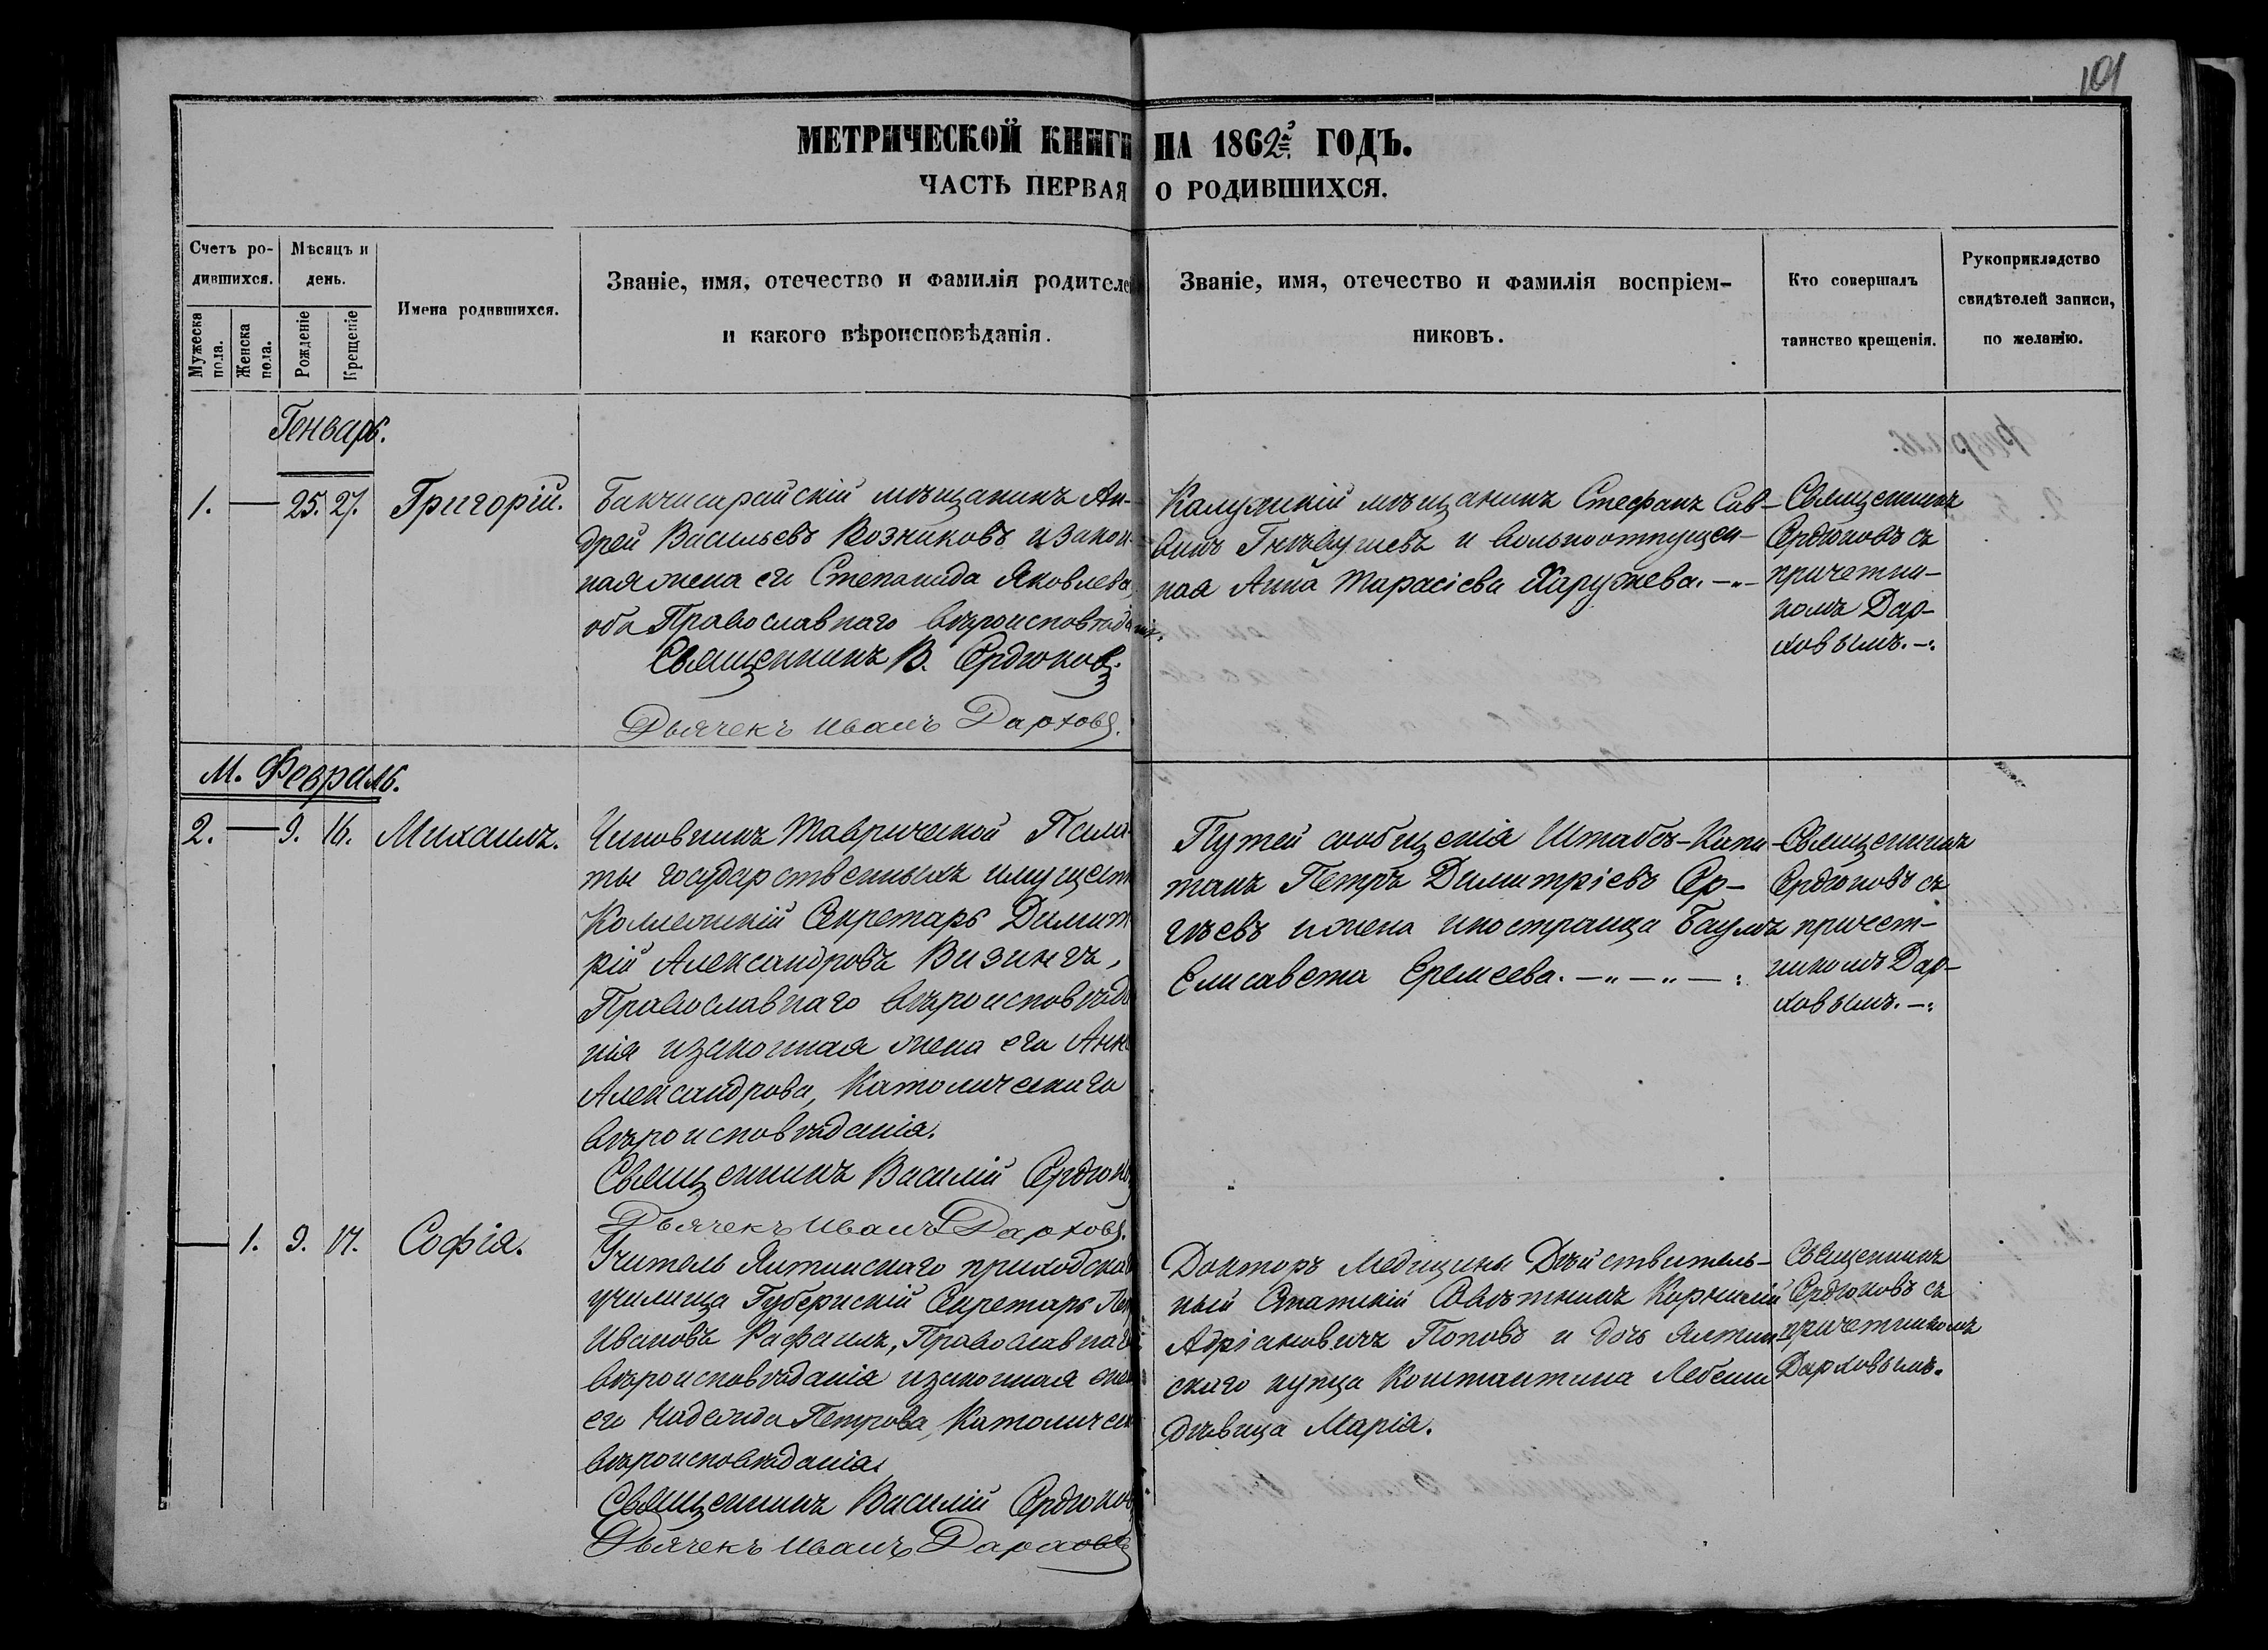 101
МЕТРИЧЕСКОЙ КНИГИ НА 1862 ГОДЪ.
ЧАСТЬ ПЕРВАЯ О РОДИВШИХСЯ.
Счетъ ро-
дившихся.
Мужеска пола.
Женска пола.
Мѣсяцъ и
день.
Рожденіе
Крещеніе
Имена родившихся.
Званіе, имя, отечество и фамилія родителей
и какого вѣроисповѣданія.
Званіе, имя, отечество и фамилія воспріем-
никовъ.
Кто совершалъ
таинство крещенія.
Рукоприкладство
свидѣтелей записи,
по желанію.
Генварь.
1. — 25. 27. Григорій.
Бакчисарайскій мѣщанинъ Ан-
дрей Васильевъ Возниковъ и закон-
ная жена его Степанида Яковлева,
оба Православнаго вѣроисповѣданія.
Священникъ В. Сердюковъ.
Дьячекъ Иванъ Дарховъ.
Калужскій мѣщанинъ Стефанъ Сав-
винъ и вольноотпущен-
ная Анна Тарасіева Харужева.
Священникъ
Сердюковъ съ
причетни-
комъ Дар-
ховымъ.
М. Февраль.
2. — 9. 16. Михаилъ.
Чиновникъ Таврической Пала-
ты государственныхъ имуществ
Коллежскій Секретарь Димит
рій Александровъ Визингъ,
Православнаго вѣроисповѣда
нія и законная жена его Анна
Александрова, Католическаго
вѣроисповѣданія.
Священникъ Василій Сердюков
Дьячекъ Иванъ Дарховъ.
Путей сообщенія Штабсъ-Капи-
танъ Петръ Димитріевъ Сер-
гѣевъ и жена иностранца Баумъ
Елисавета Еремеева.
Священникъ
Сердюковъ съ
причет-
никомъ Дар-
ховымъ.
— 1. 9. 17. Софія.
Учитель Ялтинскаго приходскаго
училища Губернскій Секретарь Петр
Ивановъ Рафаилъ, Православнаго
вѣроисповѣданія и законная жена
его Надежда Петрова, Католическ
вѣроисповѣданія.
Священникъ Василій Сердюков
Дьячекъ Иванъ Дарховъ
Докторъ Медицины Дѣйствитель-
ный Статскій Совѣтникъ Корнилій
Адріановичъ Поповъ и дочь Ялтин-
скаго купца Константина
дѣвица Марія.
Священникъ
Сердюковъ съ
причетникомъ
Дарховымъ.